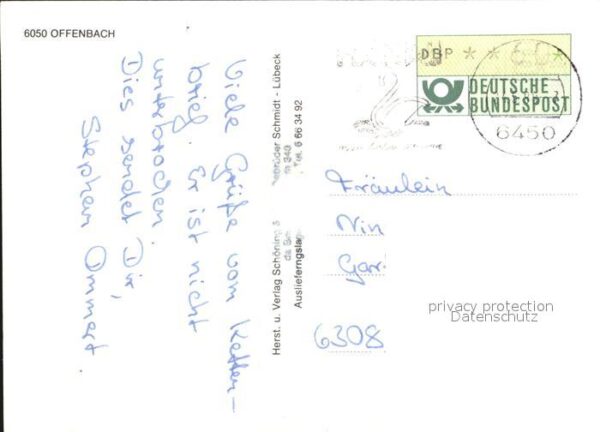 6050 OFFENBACH
Viele Grüße vom Ketten-
brief. Er ist nicht
unterbrochen.
Dies sendet Dir,
Stephan Ommert.
Herst. u. Verlag Schöning &
Gebrüder Schmidt - Lübeck
Auslieferungslag
Tel. 6 66 34 92
DBP
DEUTSCHE
BUNDESPOST
6450
Fräulein
Nin
Gar
6308
privacy protection
Datenschutz